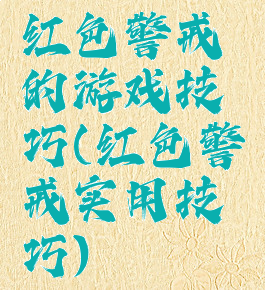 红色警戒
的游戏技
巧(红色警
戒实用技
巧)